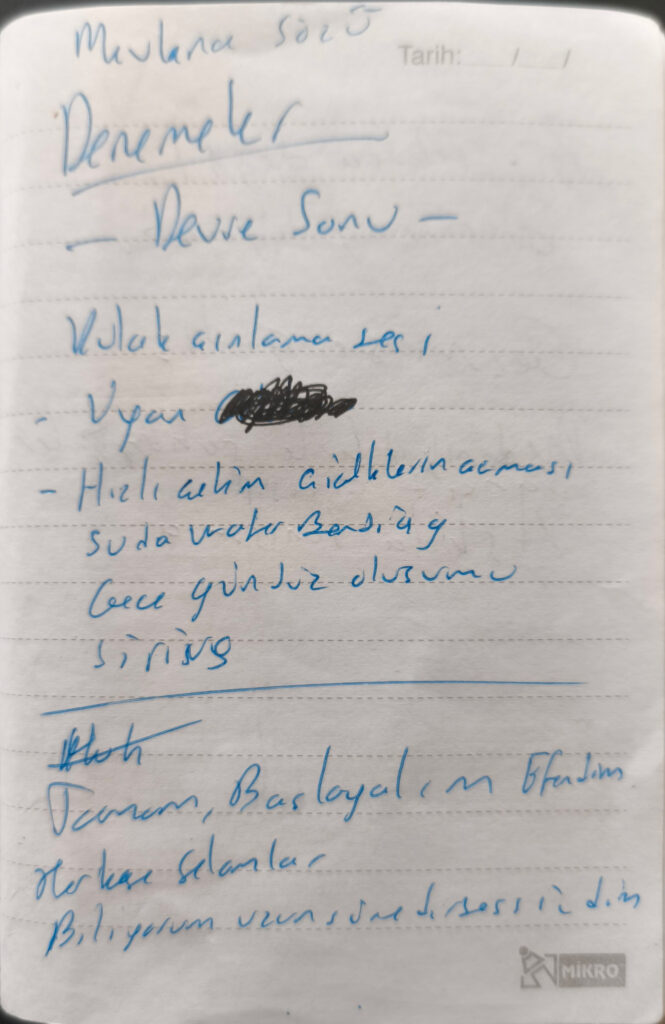 Mevlana Sözü
Tarih: / /
Denemeler
— Devre Sonu —
Kulak çınlama sesi
- Uyan
- Hızlı çekim çiçeklerin açması
suda water Bending
Gece gündüz oluşumu
Tamam, Başlayalım Efendim
Herkese Selamlar
Biliyorum uzun süredir sessizdim
MİKRO